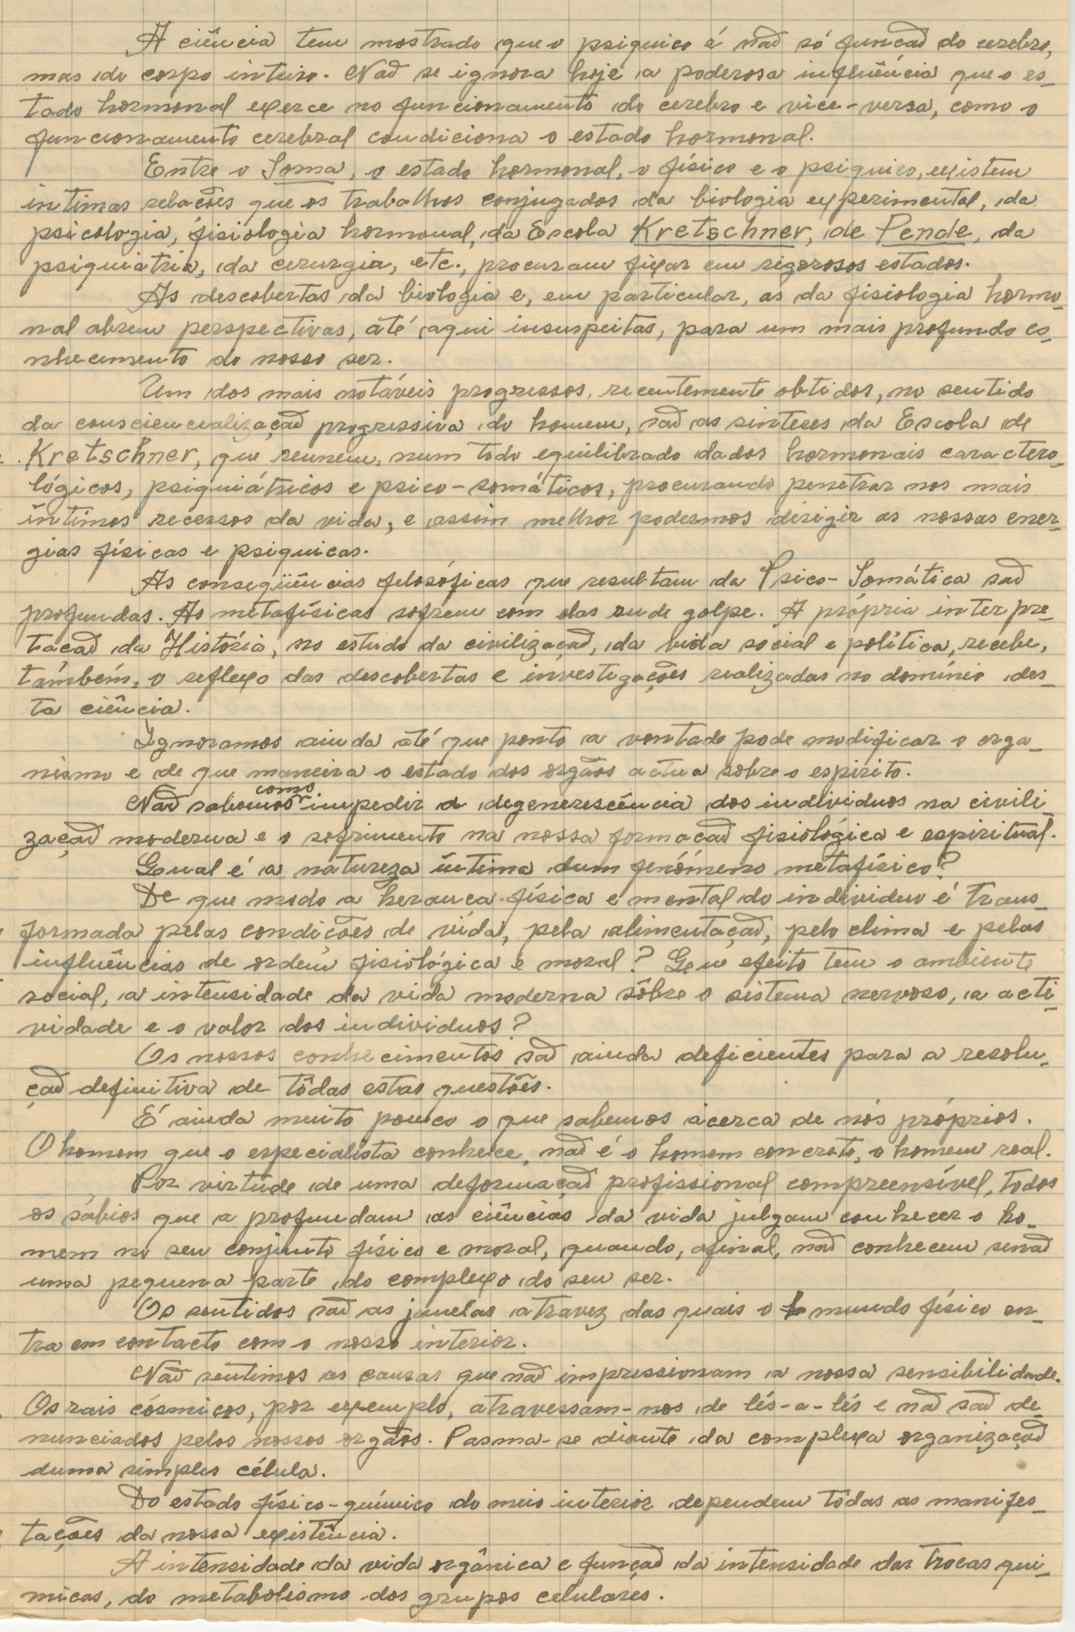 A ciência tem mostrado que o psiquico é não só função do cerebro,
mas do corpo inteiro. Não se ignora hoje a poderosa influência que o es-
tado hormonal exerce no funcionamento do cerebro e vice-versa, como o
funcionamento cerebral condiciona o estado hormonal.
Entre o Soma, o estado hormonal, o físico e o psiquico, existem
intimas relações que os trabalhos conjugados da biologia experimental, da
psicologia, fisiologia hormonal, da Escola Kretschner, de Pende, da
psiquiatria, da cirurgia, etc., procuram fixar em rigorosos estados.
As descobertas da biologia e, em particular, as da fisiologia hormo-
nal abrem perspectivas, até aqui insuspeitas, para um mais profundo co-
nhecimento do nosso ser.
Um dos mais notáveis progressos, recentemente obtidos, no sentido
da consciencialização progressiva do homem, são as sinteses da Escola de
Kretschner, que reunem, num todo equilibrado dados hormonais caractero-
lógicos, psiquiátricos e psico-somáticos, procurando penetrar nos mais
íntimos recessos da vida, e assim melhor podermos dirigir as nossas ener-
gias físicas e psiquicas.
As conseqüências filosóficas que resultam da Psico-Somática são
profundas. As metafísicas sofrem com elas rude golpe. A própria interpre-
tação da História, no estudo da civilização, da vida social e política, recebe,
também, o reflexo das descobertas e investigações realizadas no domínio des-
ta ciência.
Ignoramos ainda até que ponto a vontade pode modificar o orga-
nismo e de que maneira o estado dos orgãos actua sobre o espirito.
Não sabemos como impedir a degenerescência dos individuos na civili
zação moderna e o sofrimento na nossa formação fisiológica e espiritual.
Qual é a natureza íntima dum fenómeno metafísico?
De que modo a herança física e mental do individuo é trans-
formada pelas condições de vida, pela alimentação, pelo clima e pelas
influências de ordem fisiológica e moral? Que efeito tem o ambiente
social, a intensidade da vida moderna sôbre o sistema nervoso, a acti-
vidade e o valor dos individuos?
Os nossos conhecimentos são ainda deficientes para a resolu-
ção definitiva de tôdas estas questões.
É ainda muito pouco o que sabemos àcerca de nós próprios.
O homem que o especialista conhece, não é o homem concreto, o homem real.
Por virtude de uma deformação profissional compreensível, todos
os sábios que aprofundam as ciências da vida julgam conhecer o ho-
mem no seu conjunto físico e moral, quando, afinal, não conhecem senão
uma pequena parte do complexo do seu ser.
Os sentidos são as janelas atravez das quais o mundo físico en-
tra em contacto com o nosso interior.
Não sentimos as causas que não impressionam a nossa sensibilidade.
Os rais cósmicos, por exemplo, atravessam-nos de lés-a-lés e não são de-
nunciados pelos nossos orgãos. Pasma-se diante da complexa organização
duma simples célula.
Do estado físico-químico do meio interior dependem tôdas as manifes-
tações da nossa existência.
A intensidade da vida orgânica e função da intensidade das trocas quí-
micas, do metabolismo dos grupos celulares.